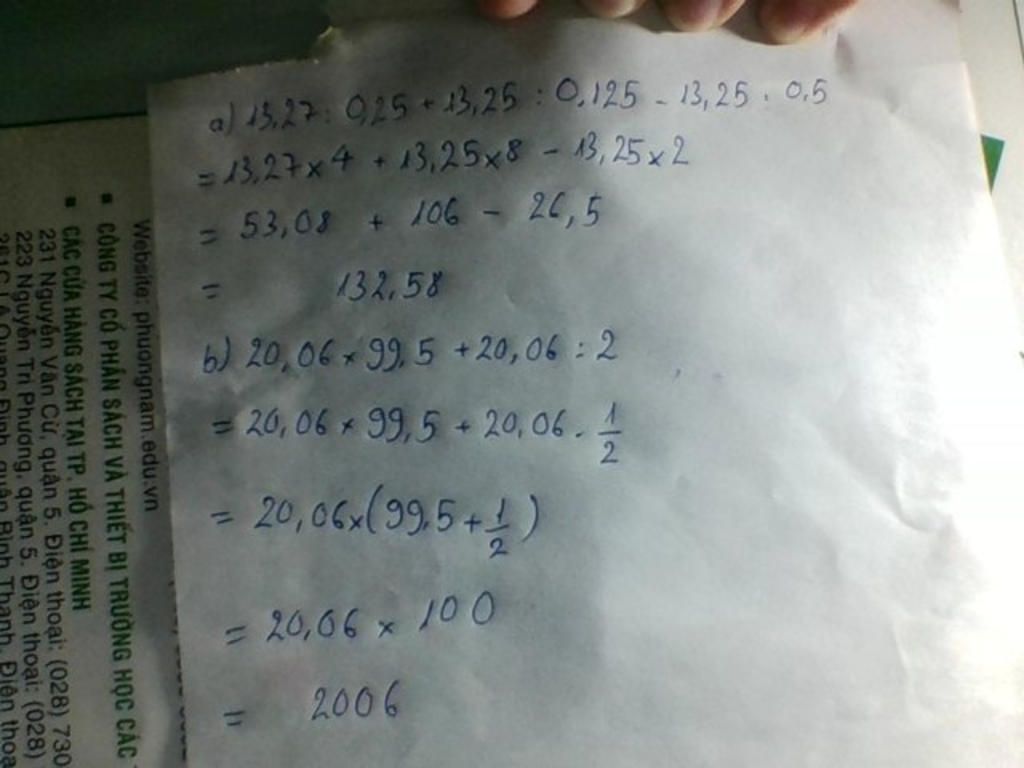 a) 13,27 : 0,25 + 13,25 : 0,125 - 13,25 : 0,5
= 13,27 x 4 + 13,25 x 8 - 13,25 x 2
= 53,08 + 106 - 26,5
= 132,58
b) 20,06 x 99,5 + 20,06 : 2
= 20,06 x 99,5 + 20,06 . 1/2
= 20,06 x (99,5 + 1/2)
= 20,06 x 100
= 2006
Website: phuongnam.edu.vn
CÔNG TY CỔ PHẦN SÁCH VÀ THIẾT BỊ TRƯỜNG HỌC CÁC
CÁC CỬA HÀNG SÁCH TẠI TP. HỒ CHÍ MINH
231 Nguyễn Văn Cừ, quận 5. Điện thoại: (028) 730
223 Nguyễn Tri Phương, quận 5. Điện thoại: (028)
261C Lê Quang Định, quận Bình Thạnh. Điện thoạ